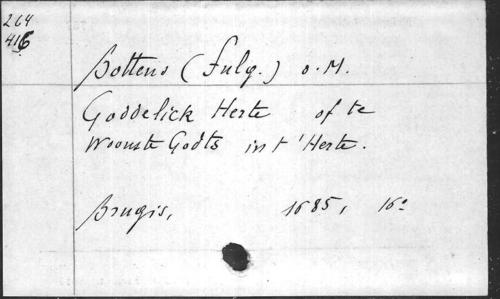 264
416
Bottens (Fulg.) o. M.
Goddelick Herte of te
Woonste Godts in t'Herte.
Brugis, 1685, 16°